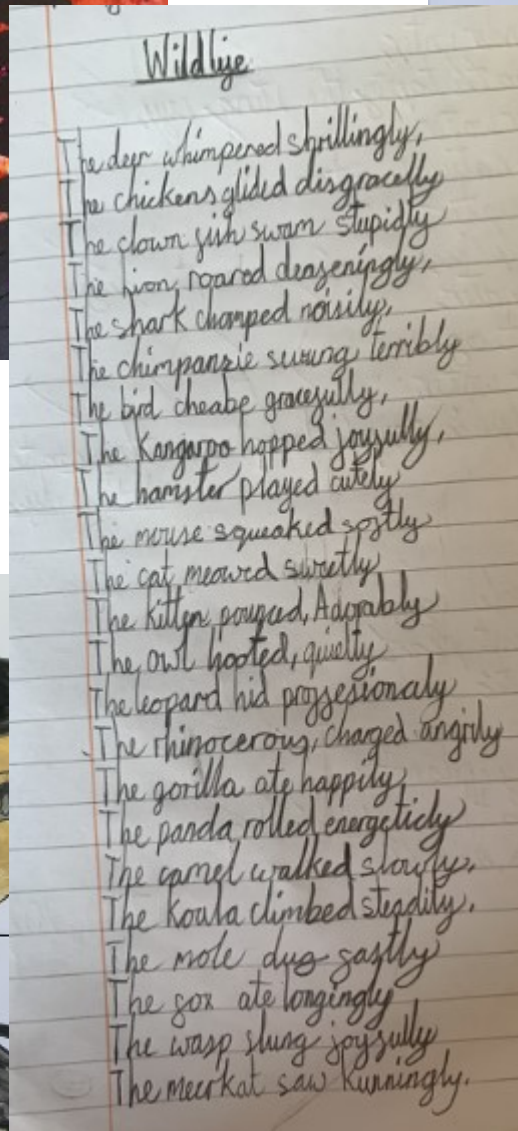 Wildlife
The deer whimpered shrillingly,
The chickens glided disgracelly
The clown fish swam stupidly
The lion, roared deafeningly,
The shark chomped noisily,
The chimpanzie swung terribly
The bird cheabe gracefully,
The Kangaroo hopped joyfully,
The hamster played cutely
The mouse squeaked softly
The cat meowed sweetly
The kitten pounced, Adorably
The, owl hooted, quielty
The leopard hid proffesionaly
The rhinocerous, charged angrily
The gorilla ate happily,
The panda, rolled energeticly
The camel walked slowly,
The Koala climbed steadily,
The mole dug fastly
The fox ate longingly
The wasp stung joyfully
The meerkat saw kunningly.